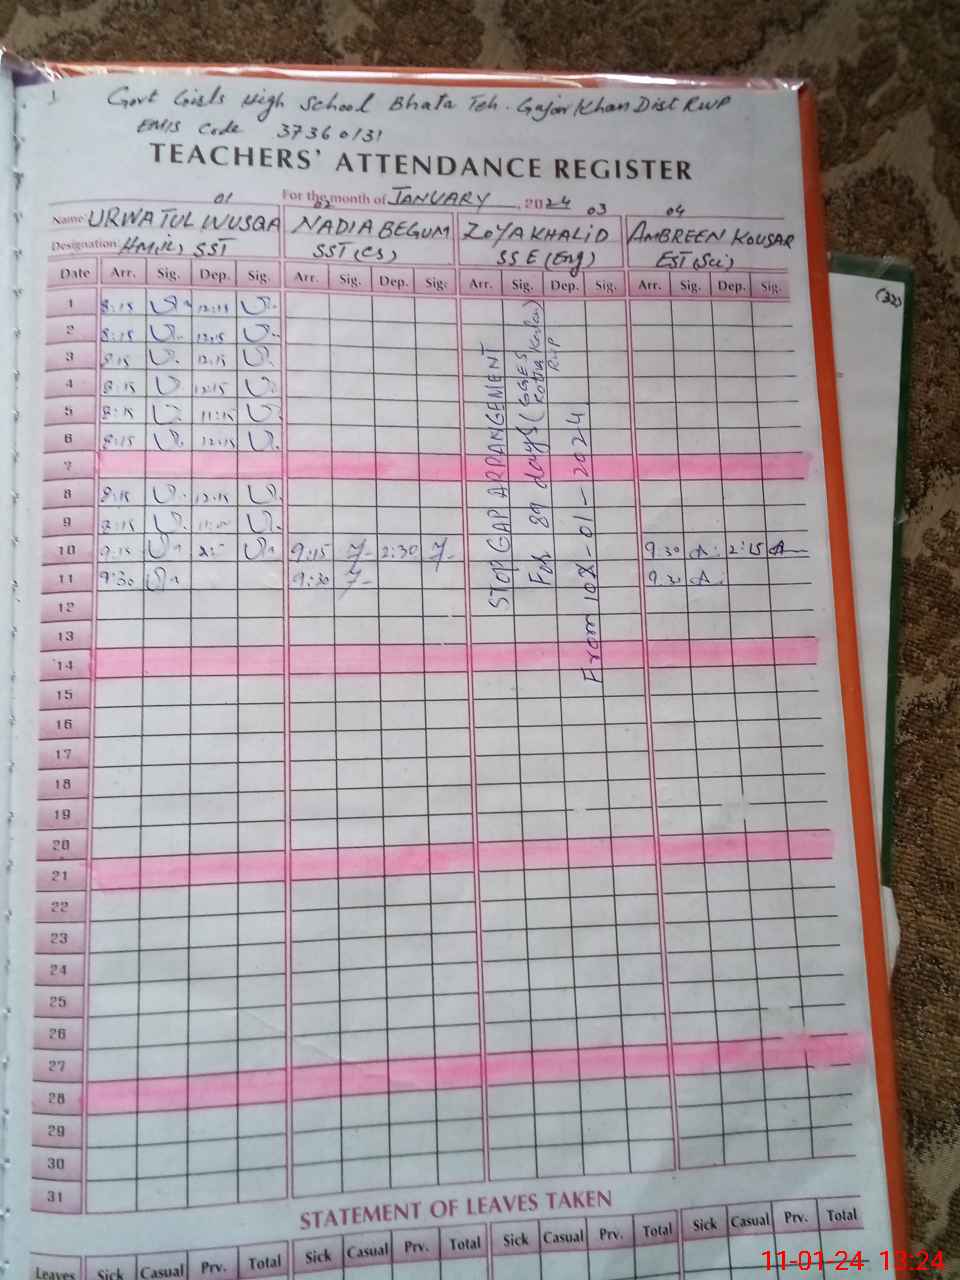 Govt Girls High School Bhata Teh. Gujar Khan Dist RWP
EMIS Code 37360131
TEACHERS' ATTENDANCE REGISTER
For the month of JANUARY, 2024
01 02 03 04
Name: URWATUL WUSQA NADIA BEGUM ZOYA KHALID AMBREEN KOUSAR
Designation: SST SST (CS) SSE (Eng) EST (Sci)
Date Arr. Sig. Dep. Sig. Arr. Sig. Dep. Sig. Arr. Sig. Dep. Sig. Arr. Sig. Dep. Sig.
1 8:15 12:15
2 8:15 12:15
3 8:15 12:15
4 8:15 12:15
5 8:15 11:15
6 8:15 12:15
7
8 8:15 12:15
9 8:15
10 9:15 9:15 2:30 9:30 2:15
11 9:30 9:30 9:30
12
13
14
15
16
17
18
19
20
21
22
23
24
25
26
27
28
29
30
31
STOP GAP ARRANGEMENT
For 89 days (GGES
RWP
From 10-01-2024
STATEMENT OF LEAVES TAKEN
Leaves Sick Casual Prv. Total Sick Casual Prv. Total Sick Casual Prv. Total Sick Casual Prv. Total
(32)
11-01-24 13:24